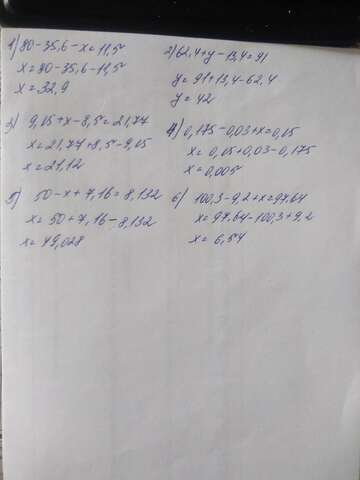 1) 80-35,6-x=11,5
x=80-35,6-11,5
x=32,9
2) 62,4+y-13,4=91
y=91+13,4-62,4
y=42
3) 9,15+x-8,5=21,77
x=21,77+8,5-9,15
x=21,12
4) 0,175-0,03+x=0,15
x=0,15+0,03-0,175
x=0,005
5) 50-x+7,16=8,132
x=50+7,16-8,132
x=49,028
6) 100,3-9,2+x=97,64
x=97,64-100,3+9,2
x=6,54